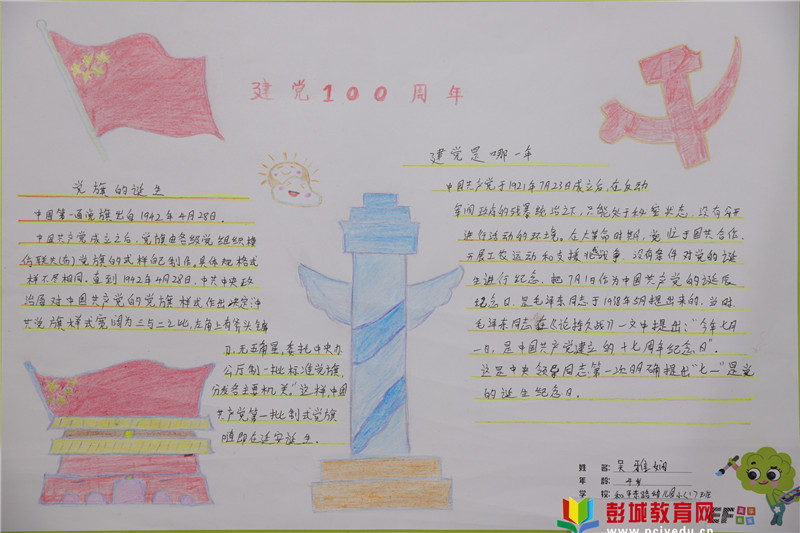 建党100周年
建党是哪一年
中国共产党于1921年7月23日成立后,在反动
军阀政府的残暴统治之下,只能处于秘密状态,没有公开
进行活动的环境。在大革命时期,党忙于国共合作、
开展工农运动和支援北伐战事,没有条件对党的诞
生进行纪念。把7月1日作为中国共产党的诞辰
纪念日,是毛泽东同志于1938年5月提出来的。当时,
毛泽东同志在《论持久战》一文中提出:"今年七月
一日,是中国共产党建立的十七周年纪念日"。
这是中央领导同志第一次明确提出"七一"是党
的诞生纪念日。
党旗的诞生
中国第一面党旗出自1942年4月28日。
中国共产党成立之后,党旗由各级党组织模
仿联共(布)党旗的式样自己制作。具体规格式
样不尽相同。直到1942年4月28日,中共中央政
治局对中国共产党的党旗样式作出决定:中
共党旗样式宽阔为三与二之比,左角上有斧头镰
刀,无五角星,委托中央办
公厅制一批标准党旗,
分发各主要机关。"这样,中国
共产党第一批制式党旗
随即在延安诞生。
姓名:吴雅娴
年龄:
学校:
彭城教育网
www.pcjyedu.cn
EF